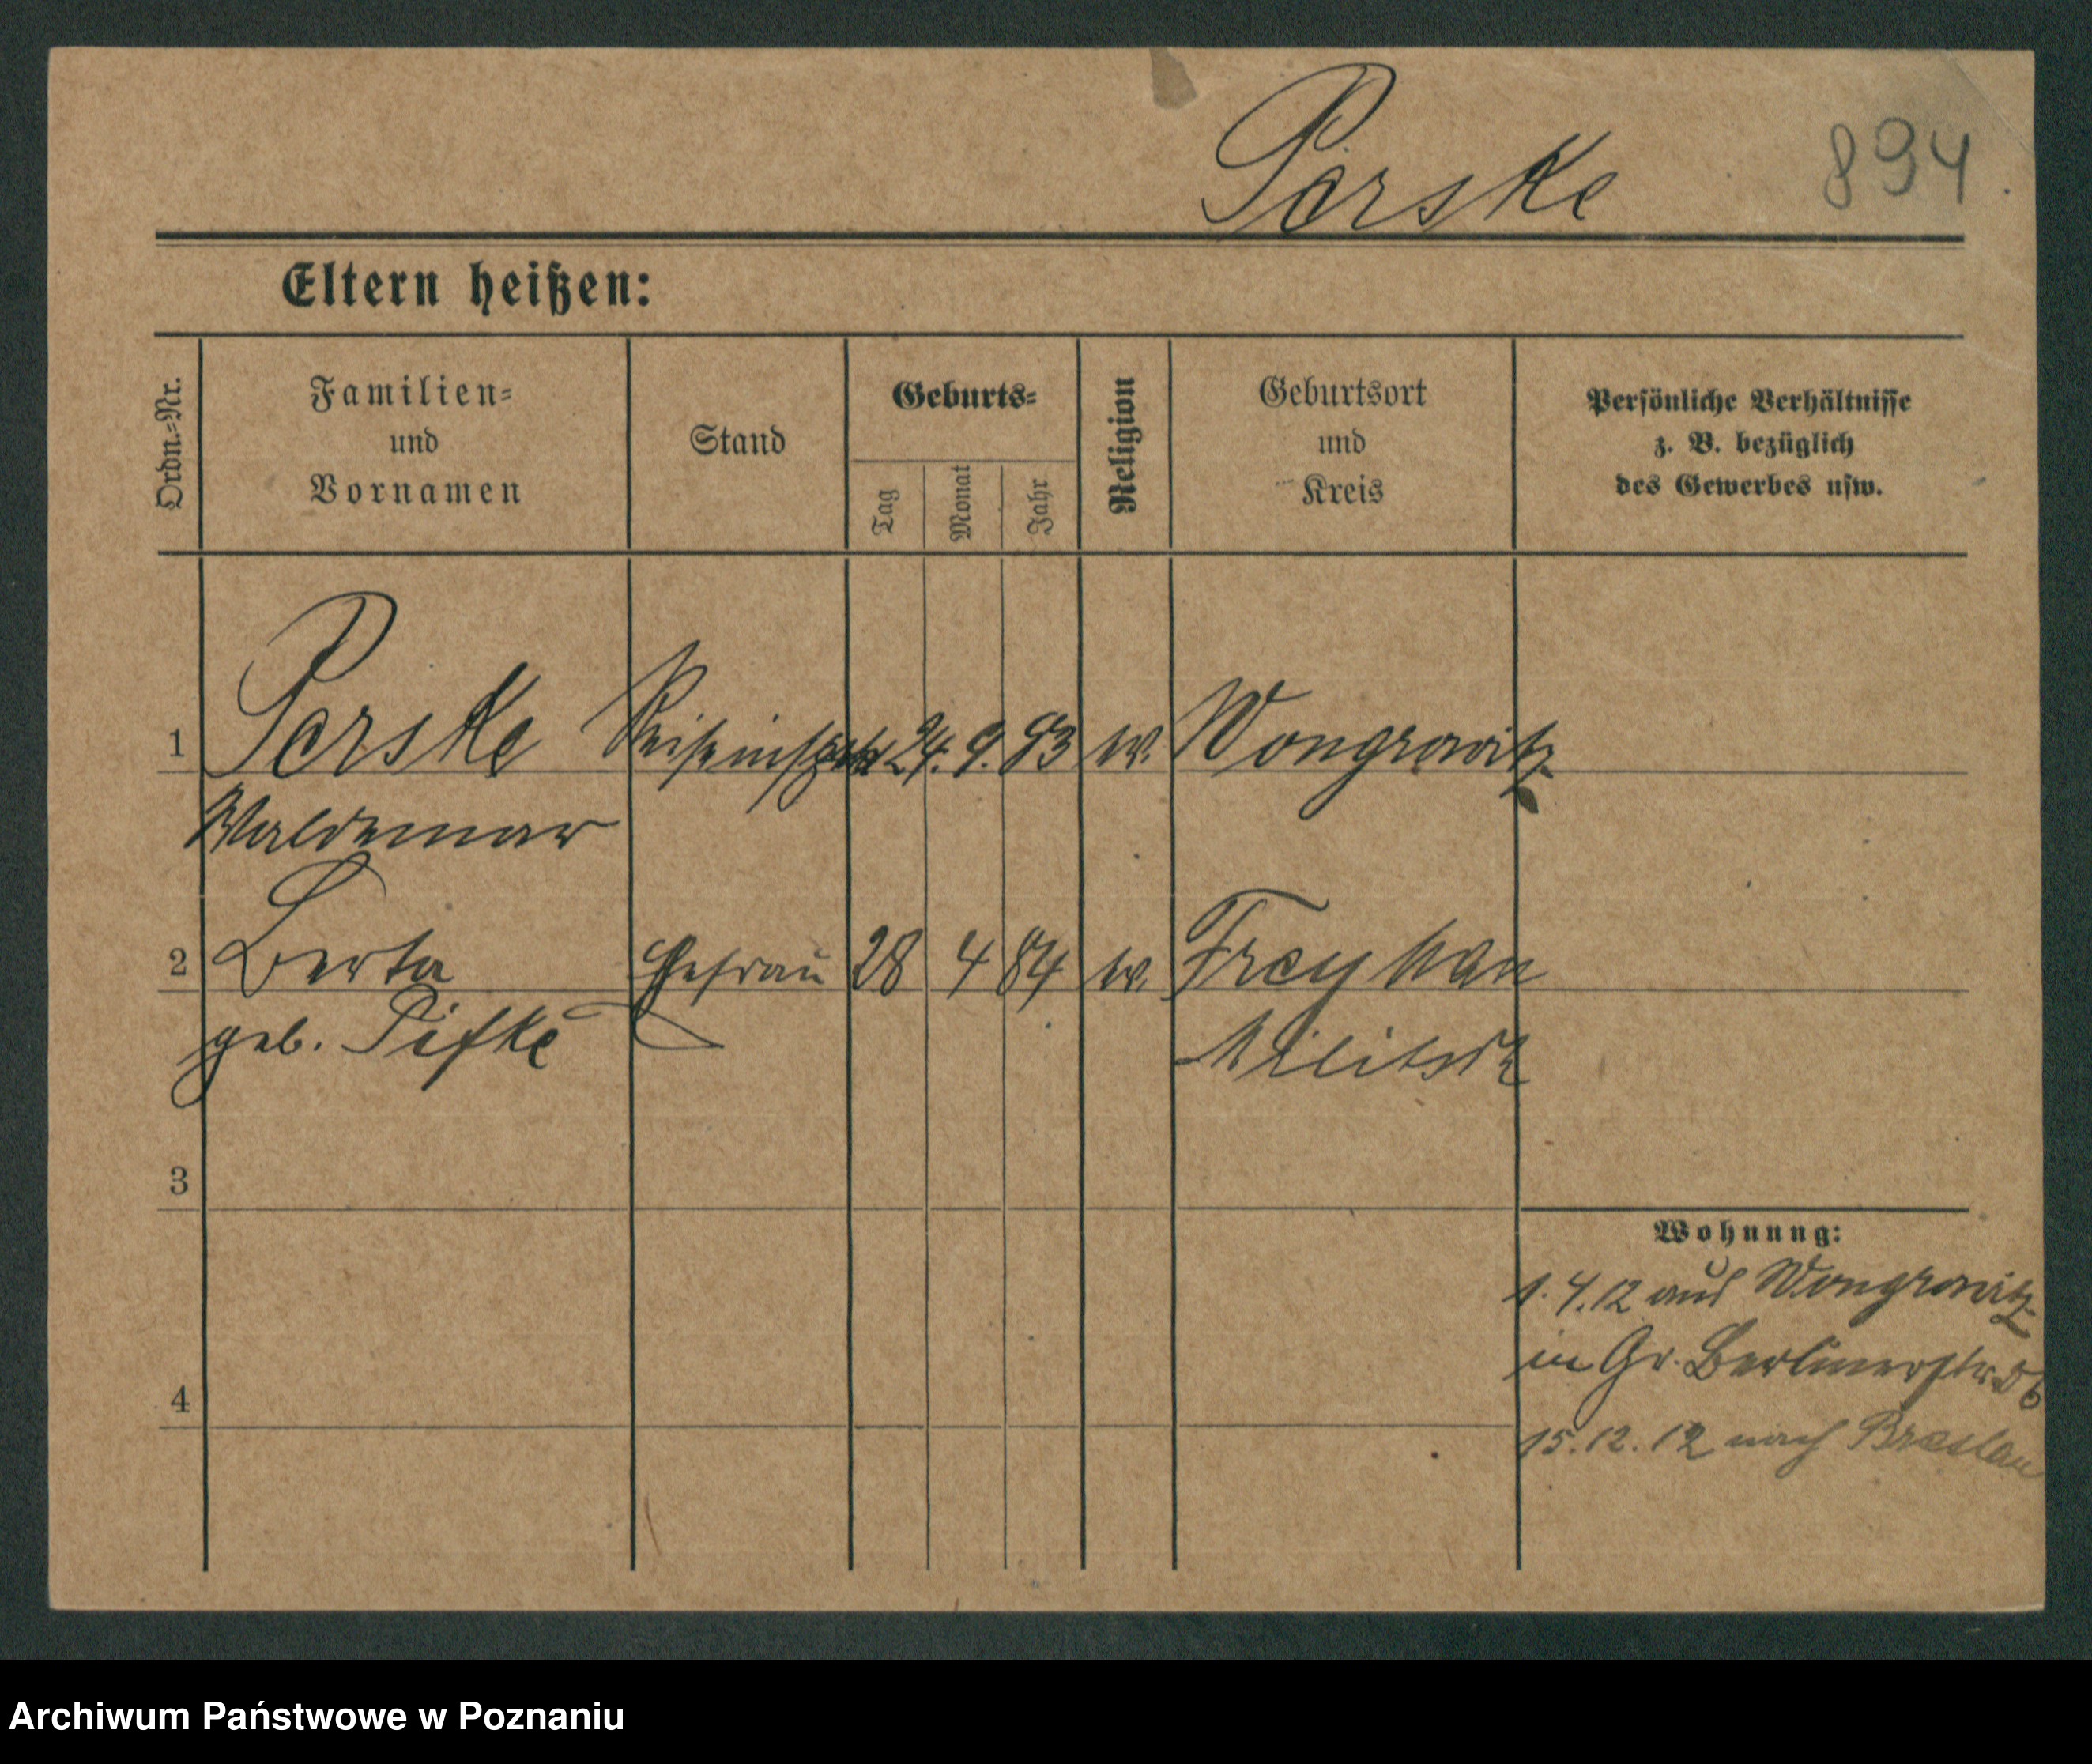 Porske 894
Eltern heißen:
Ordn.-Nr.
Familien-
und
Vornamen
Stand
Geburts-
Tag
Monat
Jahr
Religion
Geburtsort
und
Kreis
Persönliche Verhältnisse
z. B. bezüglich
des Gewerbes usw.
1 Porske 24. 9. 83 Wongrowitz
Waldemar
2 Berta Ehefrau 28 4 84 Freyhan
geb. Pifke Militsch
3
Wohnung:
1.4.12 aus Wongrowitz
in Gr. Berlinerstr.
4
15.12.12 nach Breslau
Archiwum Państwowe w Poznaniu